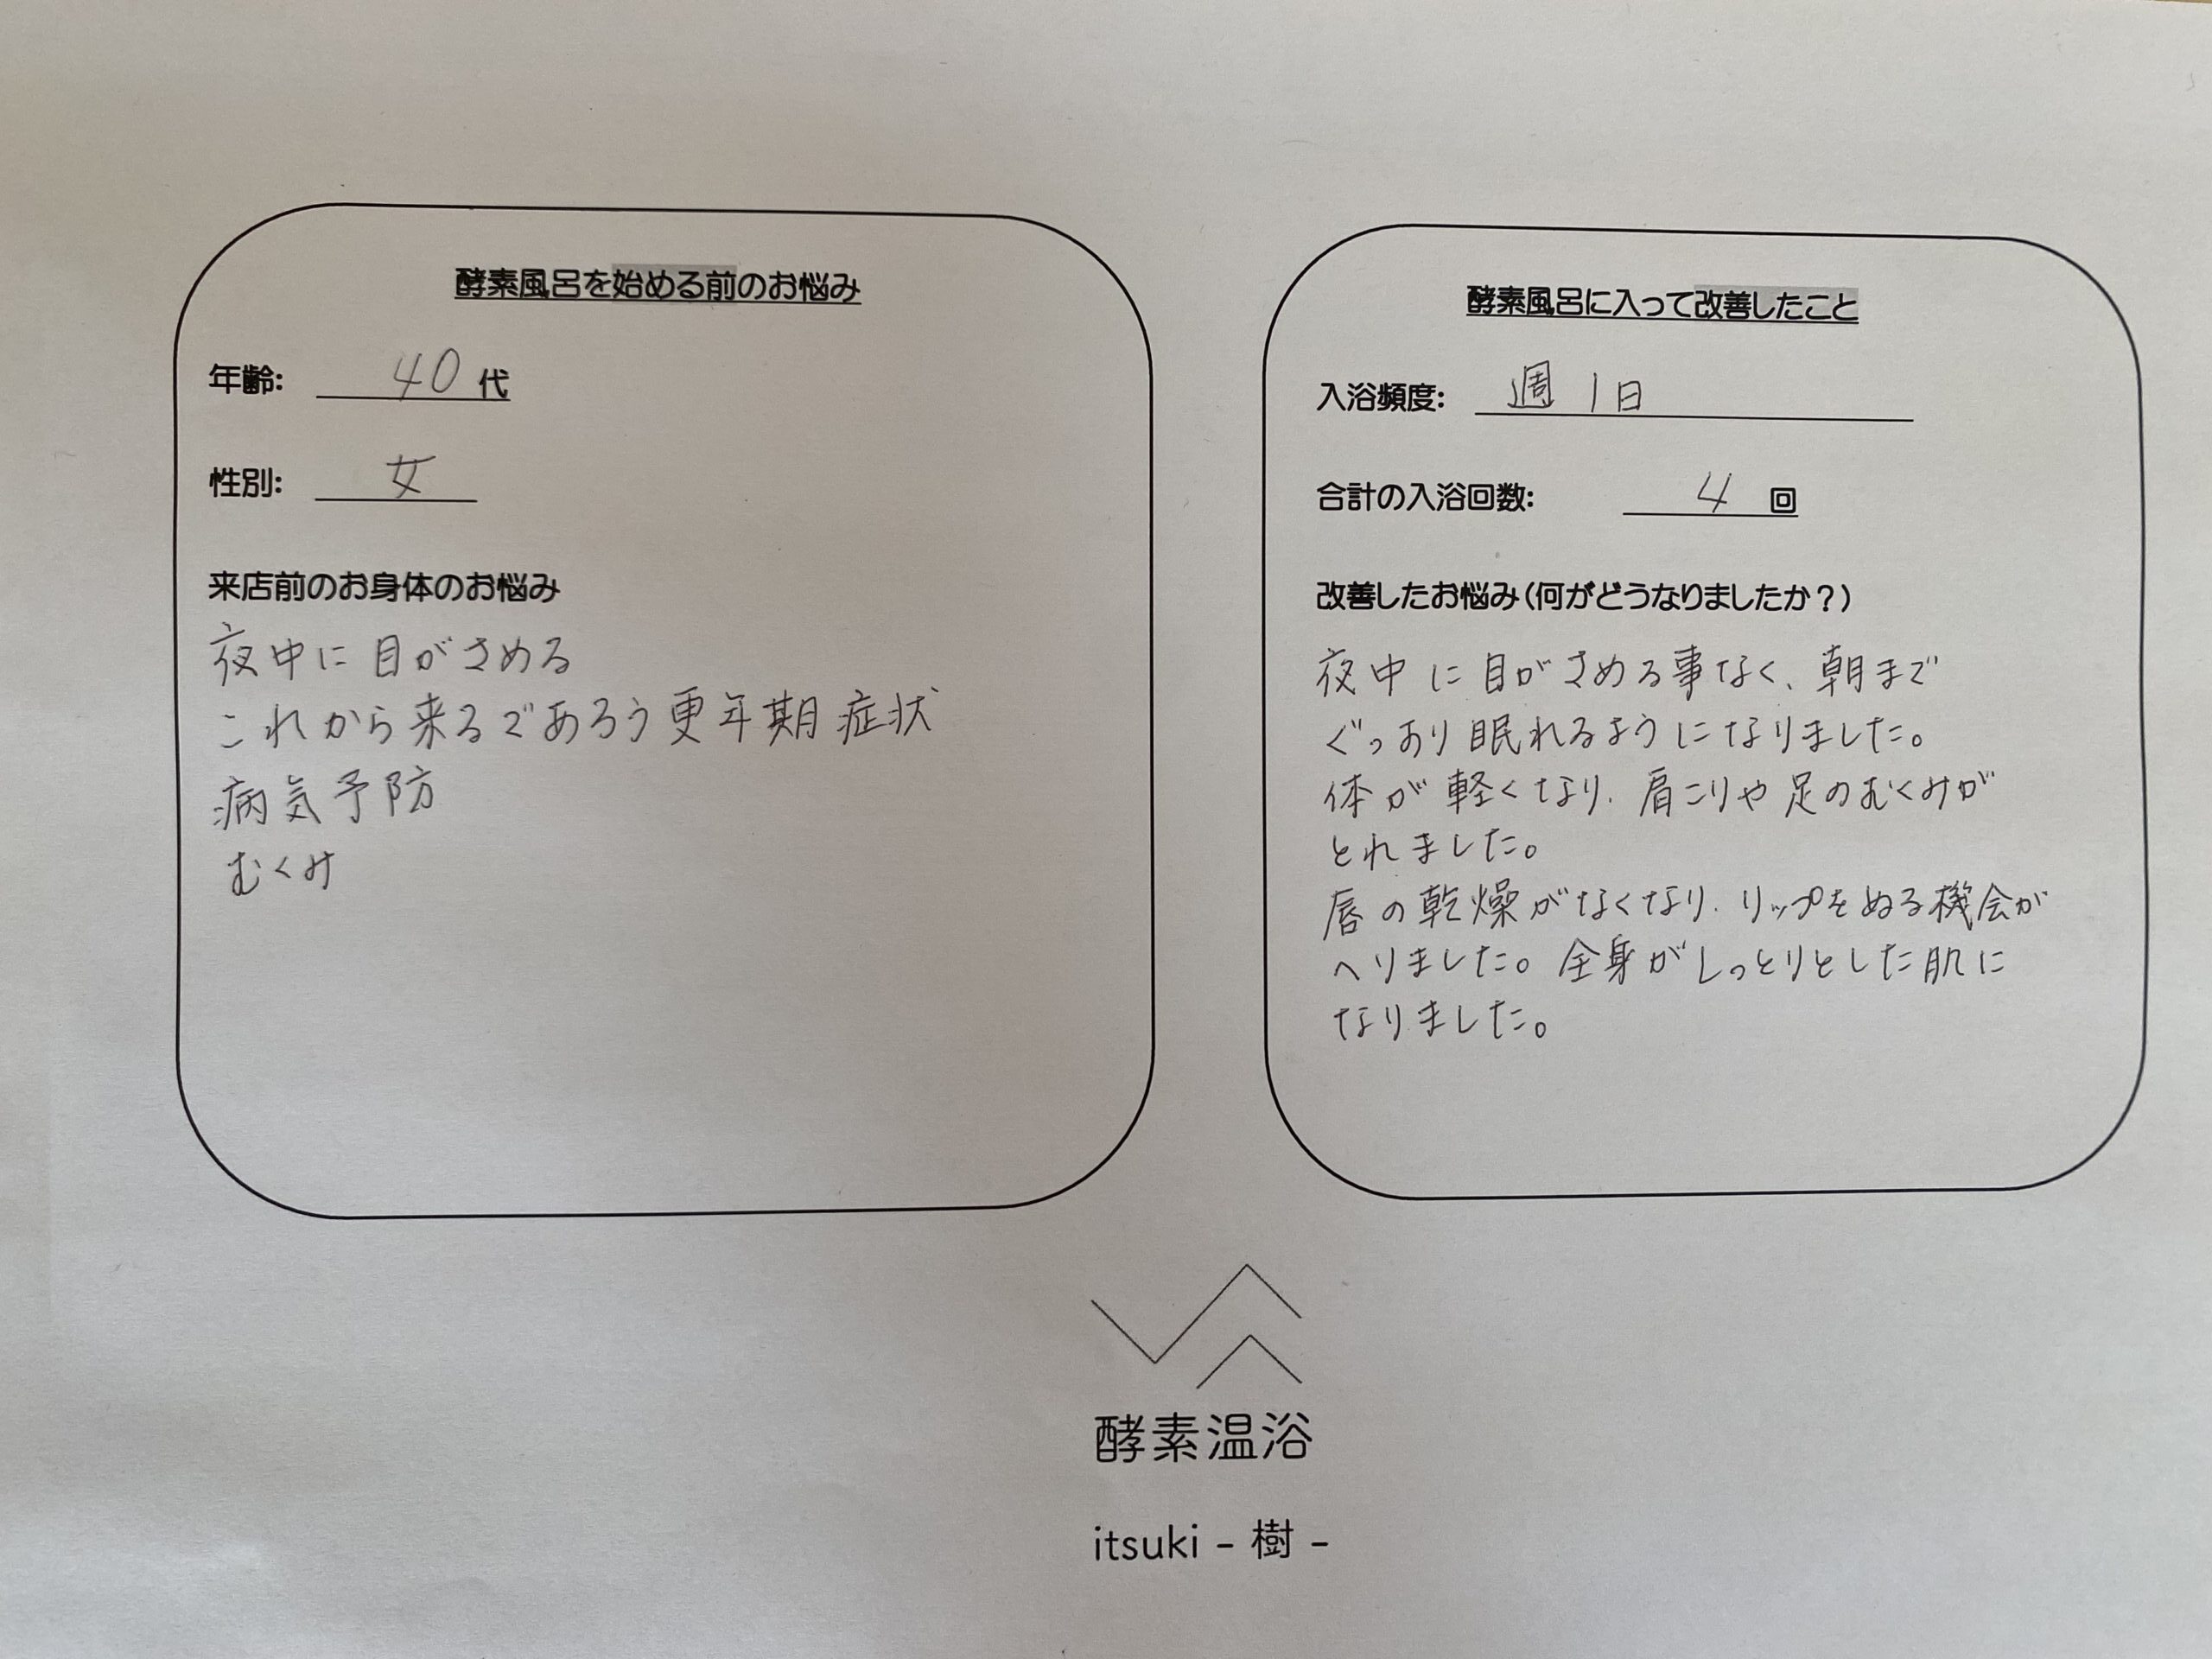 酵素風呂を始める前のお悩み
年齢: 40 代
性別: 女
来店前のお身体のお悩み
夜中に目がさめる
これから来るであろう更年期症状
病気予防
むくみ
酵素風呂に入って改善したこと
入浴頻度: 週1日
合計の入浴回数: 4 回
改善したお悩み(何がどうなりましたか?)
夜中に目がさめる事なく、朝まで
ぐっすり眠れるようになりました。
体が軽くなり、肩こりや足のむくみが
とれました。
唇の乾燥がなくなり、リップをぬる機会が
へりました。全身がしっとりとした肌に
なりました。
酵素温浴
itsuki - 樹 -